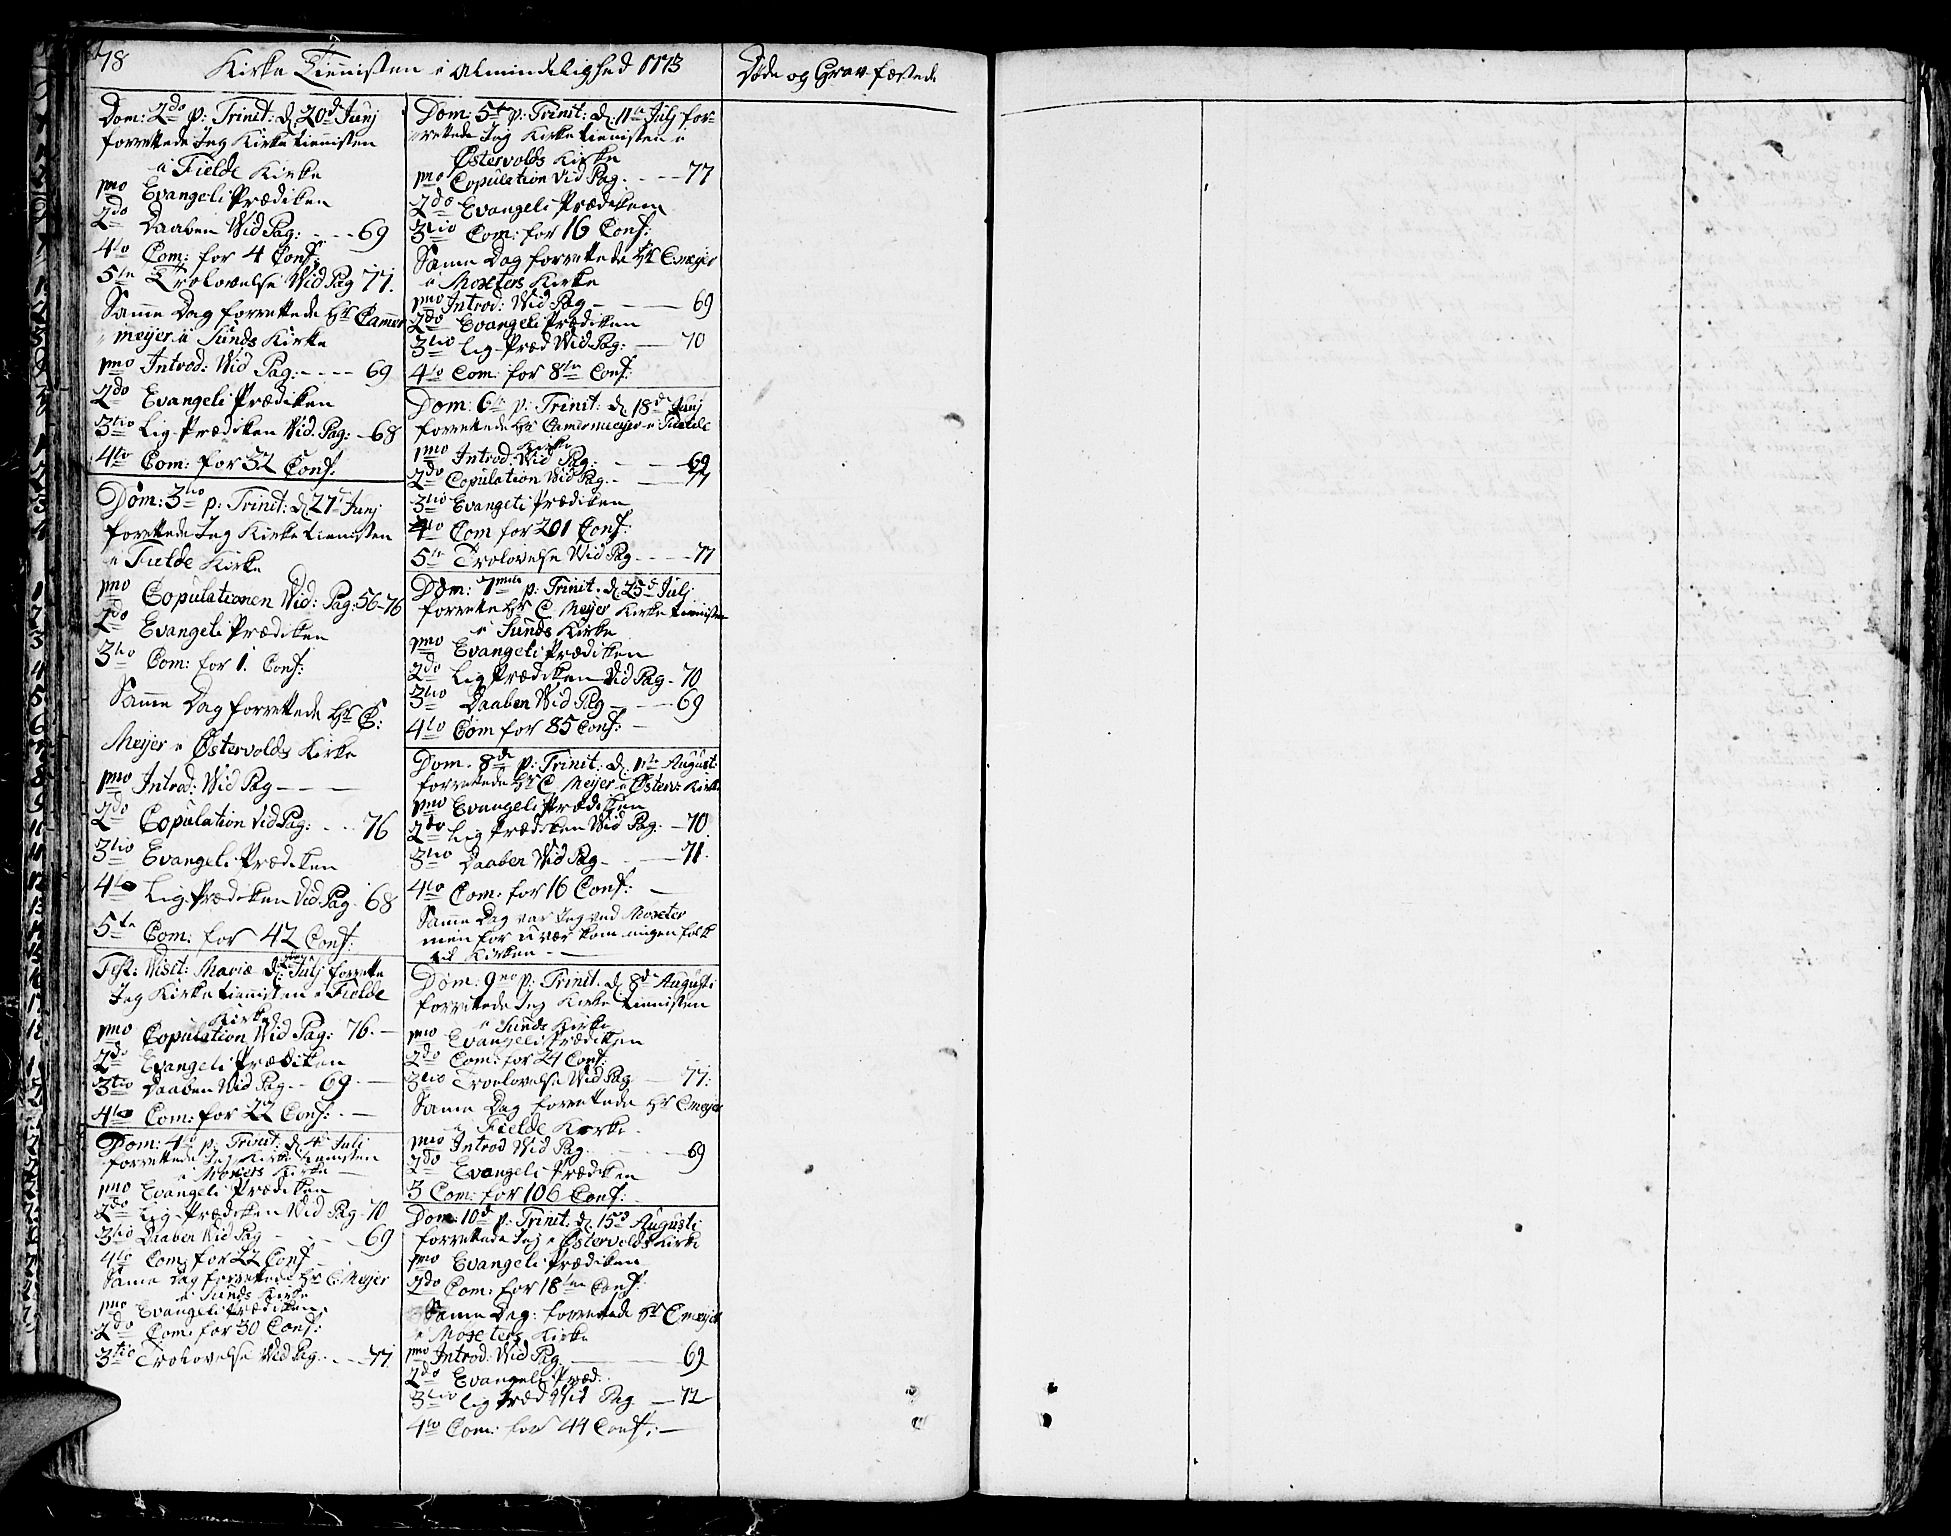 78
Kirke Tiennisten i Almindelighed 1773
Døde og Grav-fæstede
Dom: 2do p: Trinit: d. 20d Junj
forrettede Jeg Kirke tiennisten
i Fielde Kirke
1mo Evangeli Prædiken
2do Daaben Vid Pag: - - - 69
4to Com: for 4 Conf:
5te Trolovelse Vid Pag 77.
Samme Dag forrettede Hr Camer
meyer i Sunds Kirke
1mo Introd: Vid Pag: - - - - 69
2do Evangeli Prædiken
3tio Lig-Prædiken Vid. Pag: - 68
4to Com: for 32 Conf.
Dom: 3tio p: Trinit: d. 27d Junj
forrettede Jeg Kirke tiennisten
i Fielde Kirke
1mo Copulationen Vid: Pag: 56-76
2do Evangeli Prædiken
3tio Com: for 1. Conf:
Samme Dag forrettede Hr C:
Meyer i Østervolds Kirke
1mo Introd: Vid Pag - - -
2do Copulation Vid Pag: - - - 76
3tio Evangeli Prædiken
4to Lig-Prædiken Vid Pag. 68
5te Com: for 42 Conf:
Fest: Visit: Mariæ d. Julj forrette
Jeg Kirke tiennisten i Fielde
Kirke
1mo Copulation Vid Pag: 76. -
2do Evangeli Prædiken
3tio Daaben Vid Pag. - 69. -
4to Com: for 22 Conf: . -
Dom: 4te p: Trinit: d. 4de Julj
forrettede Jeg Kirke tiennisten
i Moxters Kirke
1mo Evangeli Prædiken
2do Lig-Prædiken Vid Pag - 70
3tio Daaben Vid Pag - - - 69
4to Com: for 22 Conf
Samme Dag forrettede Hr C: Meyer
i Sunds Kirke
1mo Evangeli Prædiken.
2do Com: for 30 Conf:
3tio Trolovelse Vid Pag. - - - 77.
Dom: 5te p: Trinit: d. 11te Julj for-
rettede Jeg Kirke tiennisten i
Østervolds Kirke
1mo Copulation Vid Pag. - - - 77
2do Evangeli Prædiken
3tio Com: for 16 Conf:
Samme Dag forrettede Hr Cmeyer
i Moxters Kirke
1mo Introd: Vid Pag - - - 69
2do Evangeli Prædiken
3tio Lig-Præd Vid Pag: - 70
4to Com: for 8te Conf:
Dom: 6te p: Trinit: d. 18d Julj
forrettede Hr Camermeyer i Fielde
Kirke
1mo Introd: Vid Pag: - - 69
2do Copulation Vid Pag. - - 77
3tio Evangeli Prædiken
4to Com for 201 Conf:
5te Trolovelse Vid Pag - - - 77
Dom: 7me p: Trinit. d. 25d Julj
forrette Hr C Meyer Kirke tiennisten
i Sunds Kirke
1mo Evangeli Prædiken
2do Lig Prædiken Vid Pag - 70
3tio Daaben Vid Pag - - - 69
4to Com for 85 Conf: -
Dom. 8de p: Trinit: d. 1te August:
forrettede Hr C Meyer i Østerv: Kirke
1mo Evangeli Prædiken
2do Lig Prædiken Vid Pag. - 70.
3tio Daaben Vid Pag - - 71.
4to Com: for 16 Conf: -
Samme Dag var Jeg ved Moxter
men for u vær kom ingen folk
til Kirken - -
Dom: 9no p: Trinit. d. 8d Augusti
forrettede Jeg Kirke tiennisten
i Sunds Kirke
1mo Evangeli Prædiken
2do Com: for 24 Conf:
3tio Troelovelse Vid Pag - 77:
Samme Dag forrettede Hr Cmeyer
i Fielde Kirke.
1mo Introd Vid Pag. - - 69
2do Evangeli Prædiken
3 Com: for 106 Conf:
Dom: 10d p: Trinit. d. 15d Augusti
forrettede Jeg i Østervolds Kirke
1mo Evangeli Prædiken
2do Com: for 18ten Conf:
Samme Dag: forrettede Hr Cmeyer
i Moxeters Kirke
1mo Introd: Vid Pag. - - 69
2do Evangeli Præd:
3tio Lig Præd Vid Pag - 71
4to Com: for 44 Conf: -